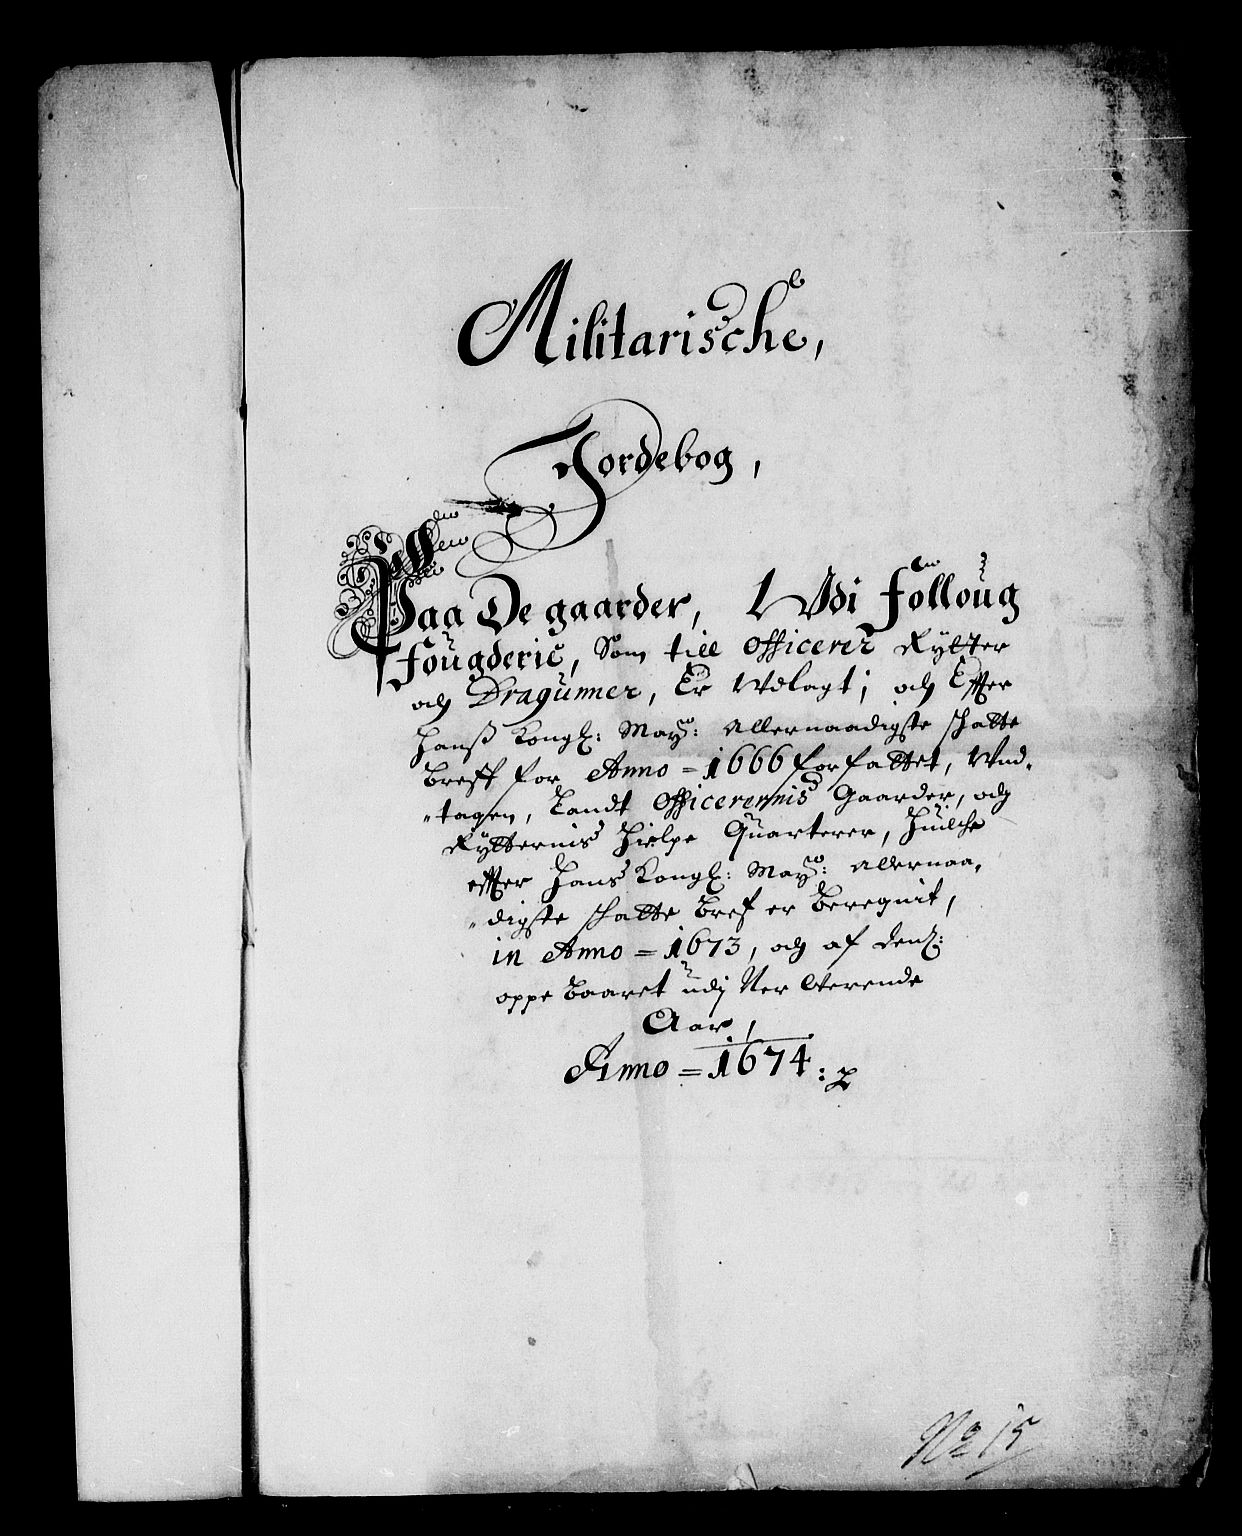 Militarische,
Jordebog,
Paa De gaarder, Udi Folloug
Fougderie, Som till Officerer Rytter
och Dragunner, Er Udlagt; och Effter
Hanß Kongl: Mayts: Allernaadigste schatte
breff for Anno = 1666 forfattet, Und-
-tagen, Landt Officerernis Gaarder, och
Rytternis Hielpe Quarterer, Huilche
effter Hans Kongl: Mayts: Allernaa-
-digste schatte bref er beregnit,
in Anno = 1673, och af denl:
oppebaaret udj Nerwerende
Aar,
Anno = 1674:
No 15